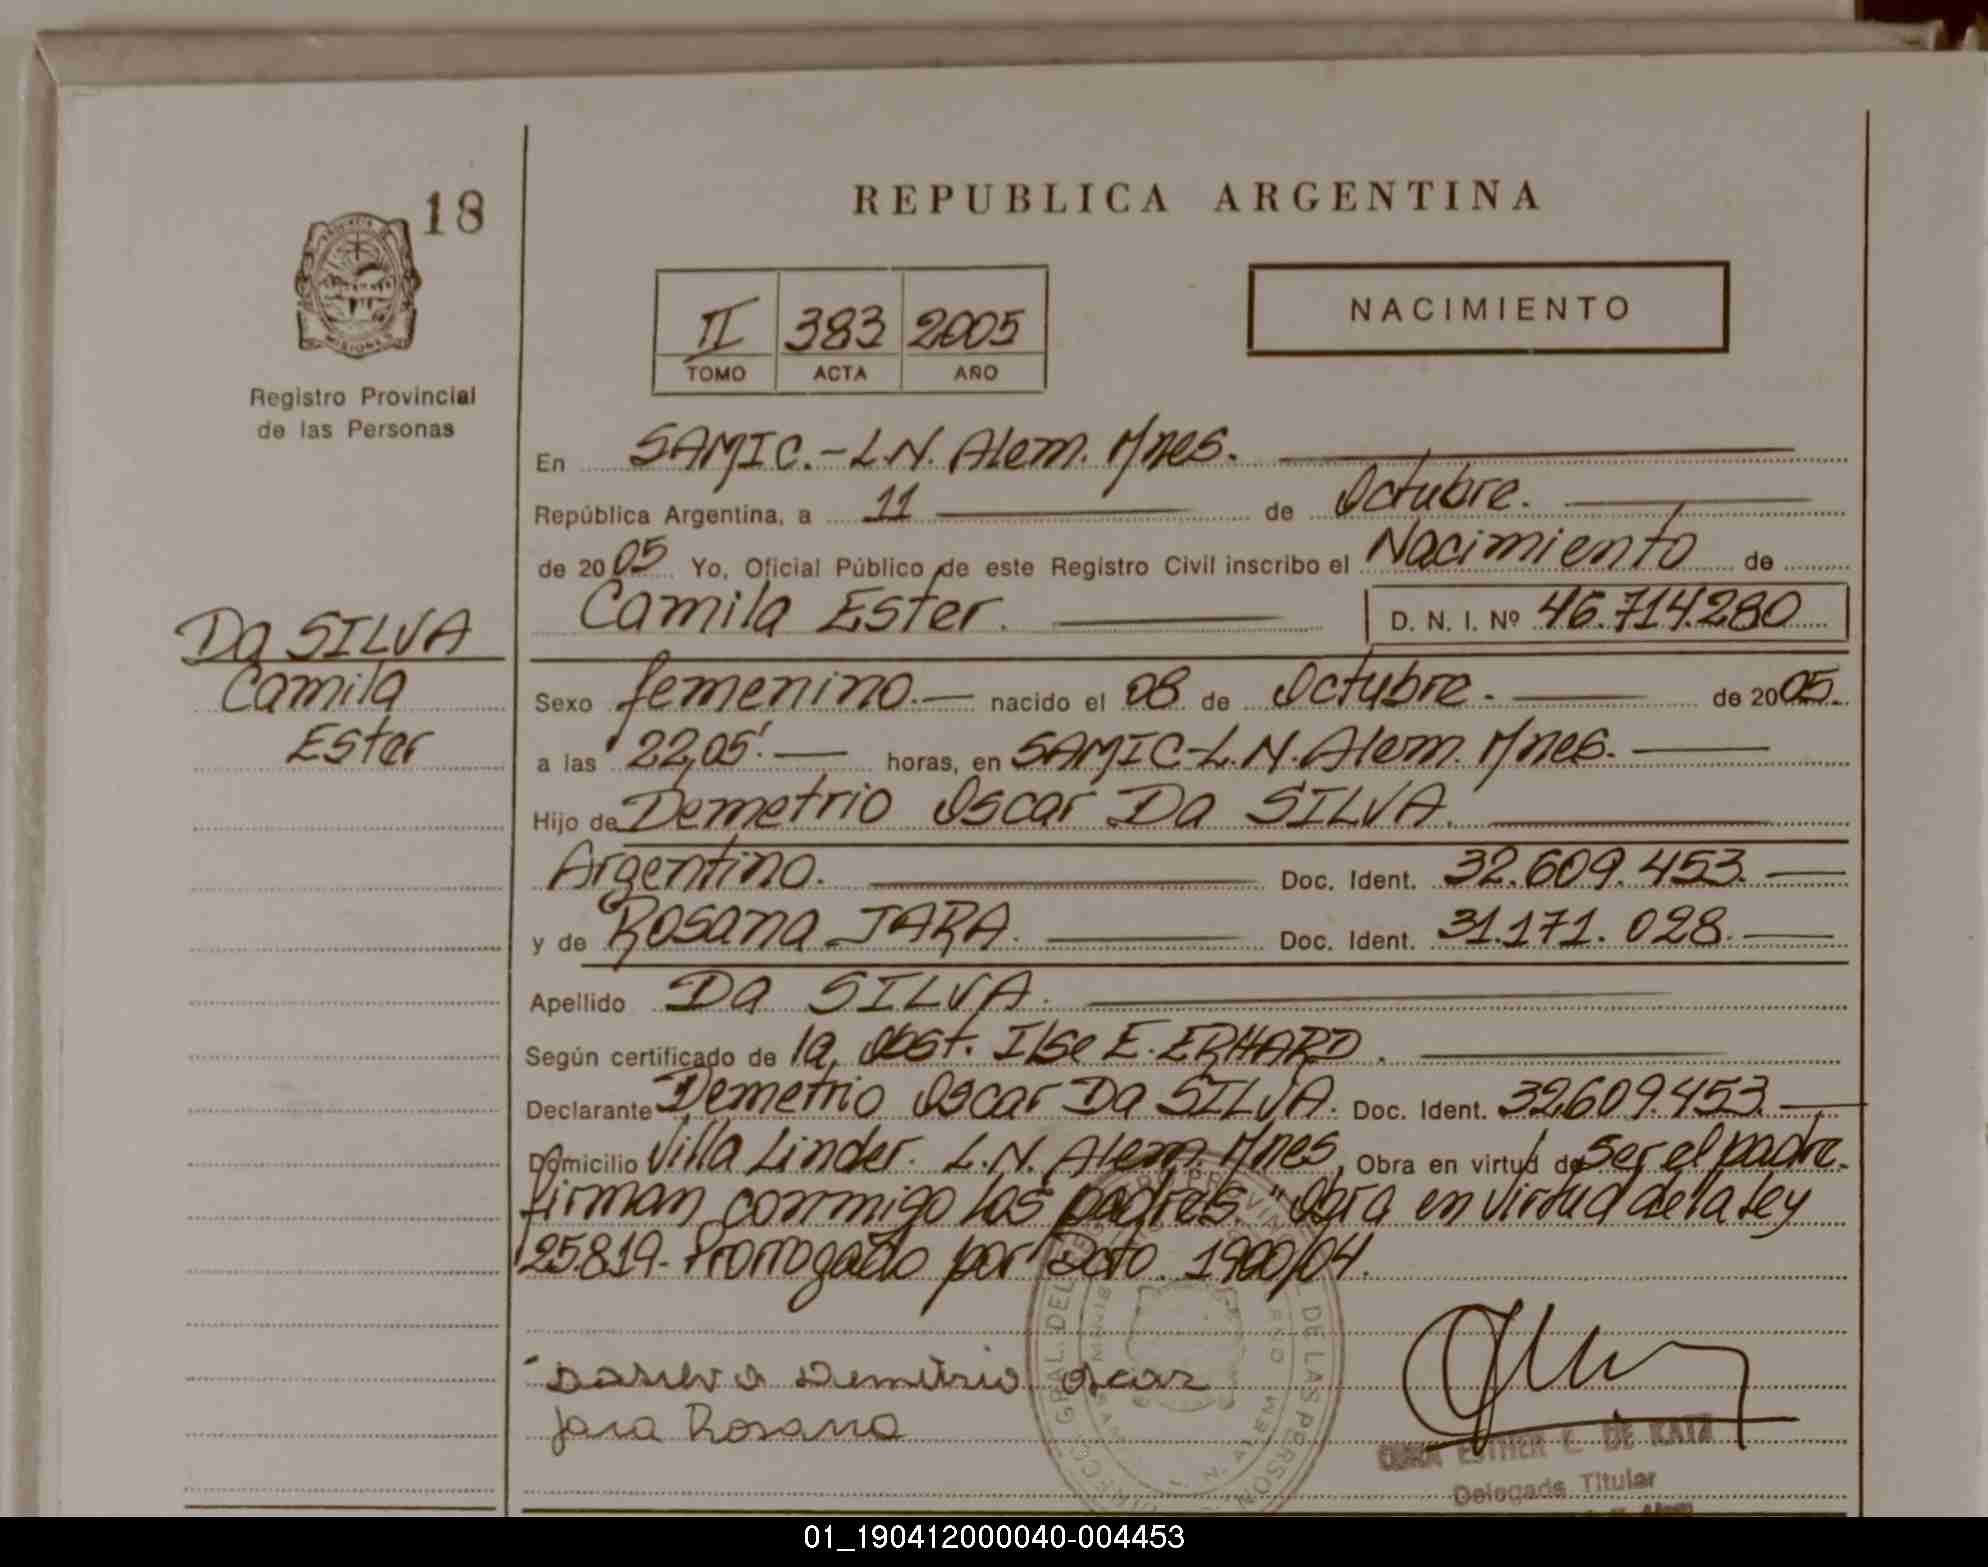 18
REPUBLICA ARGENTINA
II 383 2005
TOMO ACTA AÑO
NACIMIENTO
Registro Provincial
de las Personas
En SAMIC.-L.N. Alem. M/nes.
República Argentina, a 11 de Octubre.
de 2005 Yo, Oficial Público de este Registro Civil inscribo el Nacimiento de
Camila Ester. D. N. I. Nº 46.714.280
Da SILVA
Camila
Ester
Sexo femenino.- nacido el 08 de Octubre. de 2005.
a las 22,05'. horas, en SAMIC-L.N. Alem. M/nes.
Hijo de Demetrio Oscar Da SILVA.
Argentino. Doc. Ident. 32.609.453.
y de Rosana JARA. Doc. Ident. 31.171.028.
Apellido Da SILVA.
Según certificado de la, Obst. Ilse E. ERHARD.
Declarante Demetrio Oscar Da SILVA. Doc. Ident. 32.609.453.
Domicilio Villa Linder. L.N. Alem. M/nes, Obra en virtud de Ser el padre.
firman conmigo los padres." Obra en virtud de la Ley
25.819- Prorrogado por Dcto. 1900/04.
Dasilva Demetrio Oscar
Jara Rosana
ESTHER DE KATZ
Delegada Titular
01_190412000040-004453